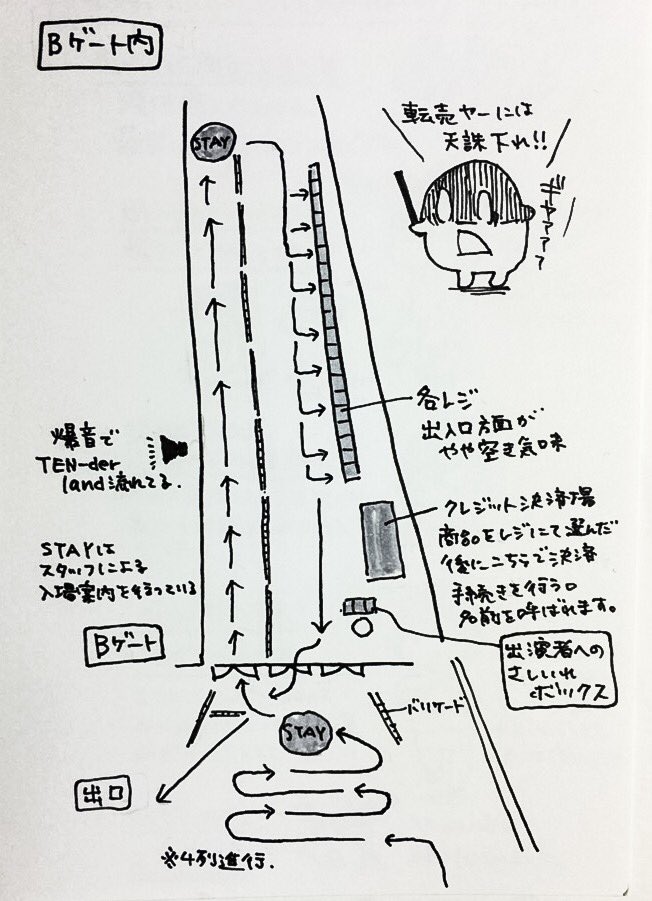 Bゲート内
転売ヤーには
天誅下れ!!
ギャァァァ
STAY
各レジ
出入口方面が
やや空き気味
爆音で
TEN-der
land流れてる.
クレジット決済場
商品をレジにて選んだ
後にこちらで決済
手続きを行う。
名前を呼ばれます。
STAYは
スタッフによる
入場案内を待っている
Bゲート
出演者への
さしいれ
ボックス
バリケード
STAY
出口
※4列進行.